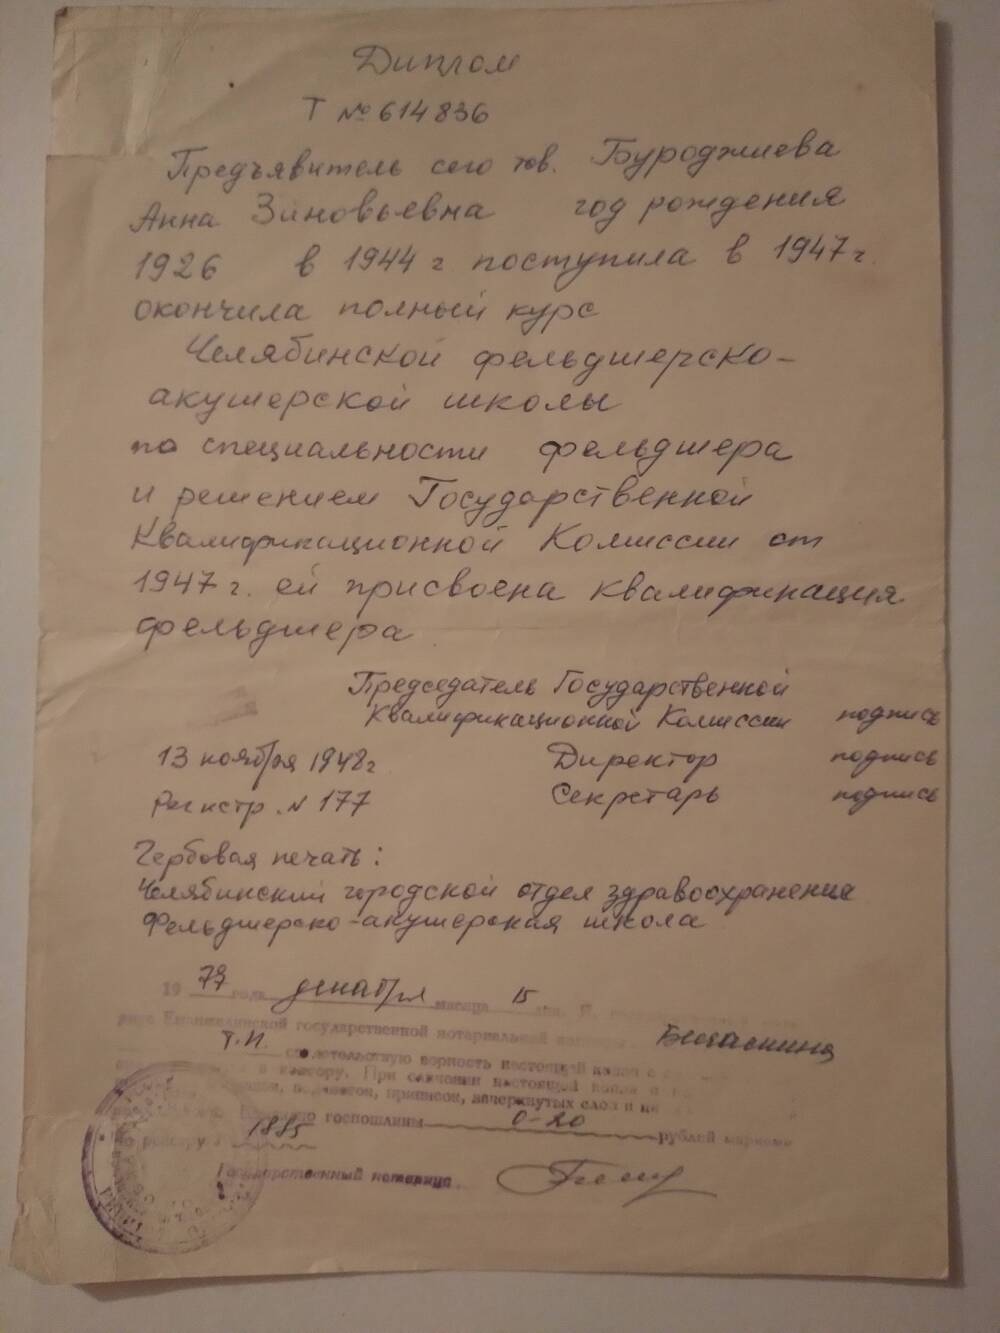 Диплом
Т № 614836
Предъявитель сего тов. Буроджиева
Анна Зиновьевна год рождения
1926 в 1944 г поступила в 1947 г.
окончила полный курс
Челябинской фельдшерско-
акушерской школы
по специальности фельдшера
и решением Государственной
Квалификационной Комиссии от
1947 г. ей присвоена квалификация
фельдшера
Председатель Государственной
Квалификационной Комиссии подпись
13 ноября 1948 г Директор подпись
Регистр. № 177 Секретарь подпись
Гербовая печать:
Челябинский городской отдел здравоохранения
Фельдшерско-акушерская школа
19 79 года декабря месяца 15 дня. Я,
государственной нотариальной конторы
Т.И. свидетельствую верность настоящей копии с
в контору. При сличении настоящей копии
подчисток, приписок, зачеркнутых слов и
госпошлины 0-20 рублей марками
по реестру 1885
Государственный нотариус